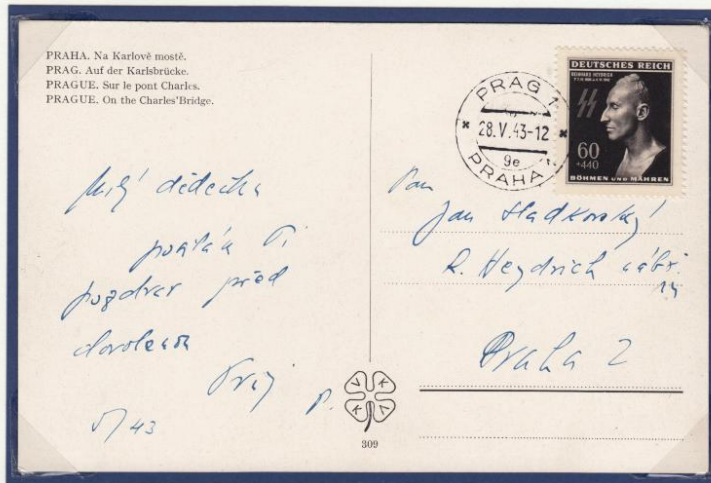 PRAHA. Na Karlově mostě.
PRAG. Auf der Karlsbrücke.
PRAGUE. Sur le pont Charles.
PRAGUE. On the Charles'Bridge.
DEUTSCHES REICH
REINHARD HEYDRICH
60
+440
BÖHMEN UND MÄHREN
PRAG 1
28.V.43-12
9e
PRAHA 1
Milý dědečku
posílám Ti
pozdrav před
dovolenou
Tvůj P.
V/43
Pan
Jan Sladkovský
R. Heydrich nábř.
Praha 2
V K
K V
309